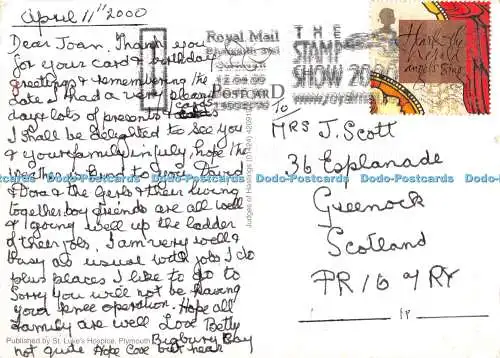 April 11" 2000
Dear Joan, Thank you
for your card & birthday
greetings & remembering the
date. I had a very pleasant
day & lots of presents & cards
I shall be delighted to see you
& your family in July, hope the
weather is kind to you. Chris
& Dora & the Girls & their living
together boy friends are all well
& going well up the ladder
of their jobs. I am very well &
busy as usual with jobs I do
plus places I like to go to
Sorry you will not be having
your knee operation. Hope all
family are well Love Betty
Bigbury Bay
not quite Hope Cove but near
Published by St. Luke's Hospice, Plymouth
Judges of Hastings (01424) 420919
POSTCARD
Royal Mail
12-04-00
THE
STAMP
SHOW 2000
Hark the
herald
angels sing
To
MRS J. Scott
36 Esplanade
Greenock
Scotland
PR16 7RY
Dodo-Postcards Dodo-Postcards Dodo-Postcards Dodo-Postcards Dodo-Postcards